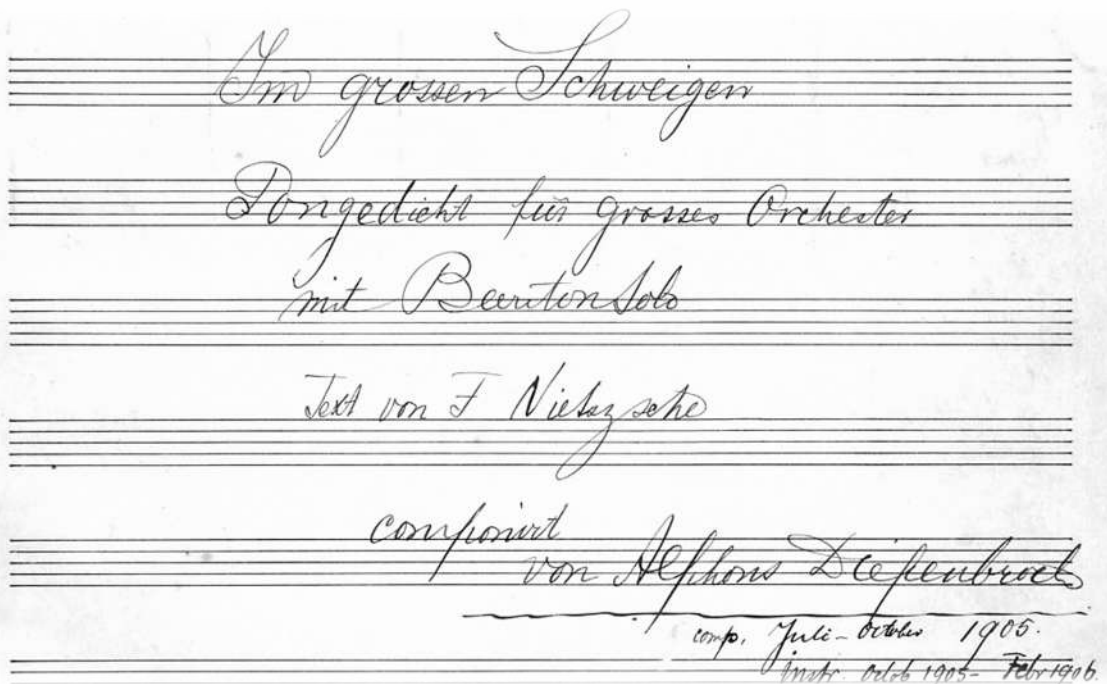 Im grossen Schweigen
Tongedicht für grosses Orchester
mit Bariton Solo
Text von F Nietzsche
componirt
von Alphons Diepenbrock
comp. Juli - October 1905.
instr. Octob 1905 - Febr 1906.